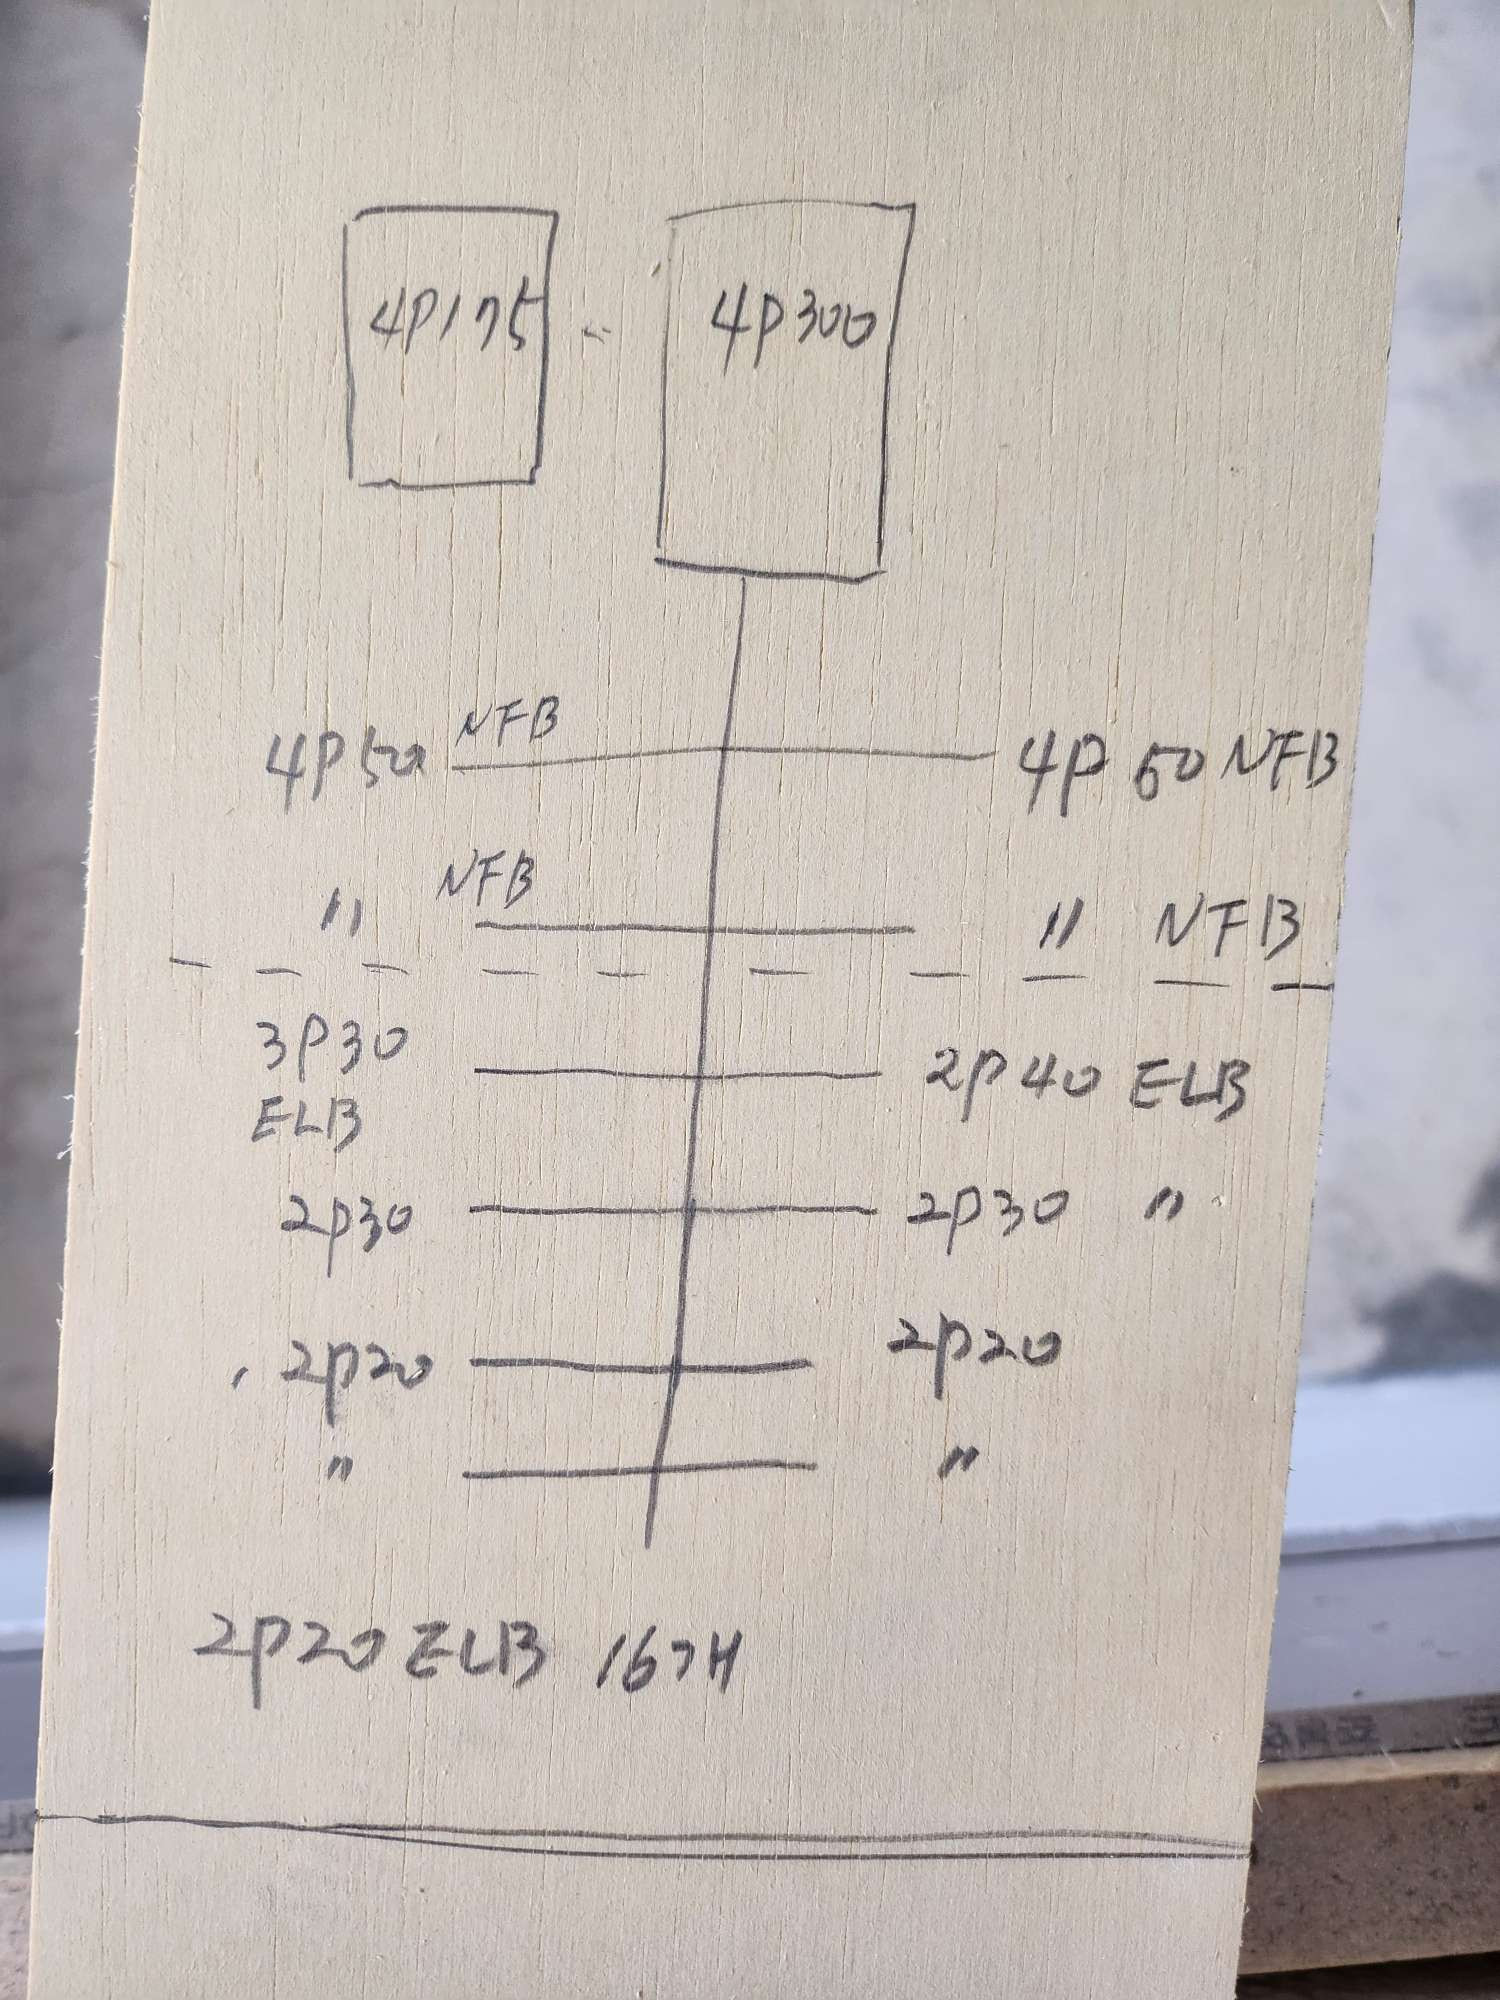 4P175 4P300
4P50 NFB 4P 50 NFB
〃 NFB 〃 NFB
3P30 ELB 2P 40 ELB
2P30 2P30 〃
2P20 2P20
〃 〃
2P20 ELB 16개